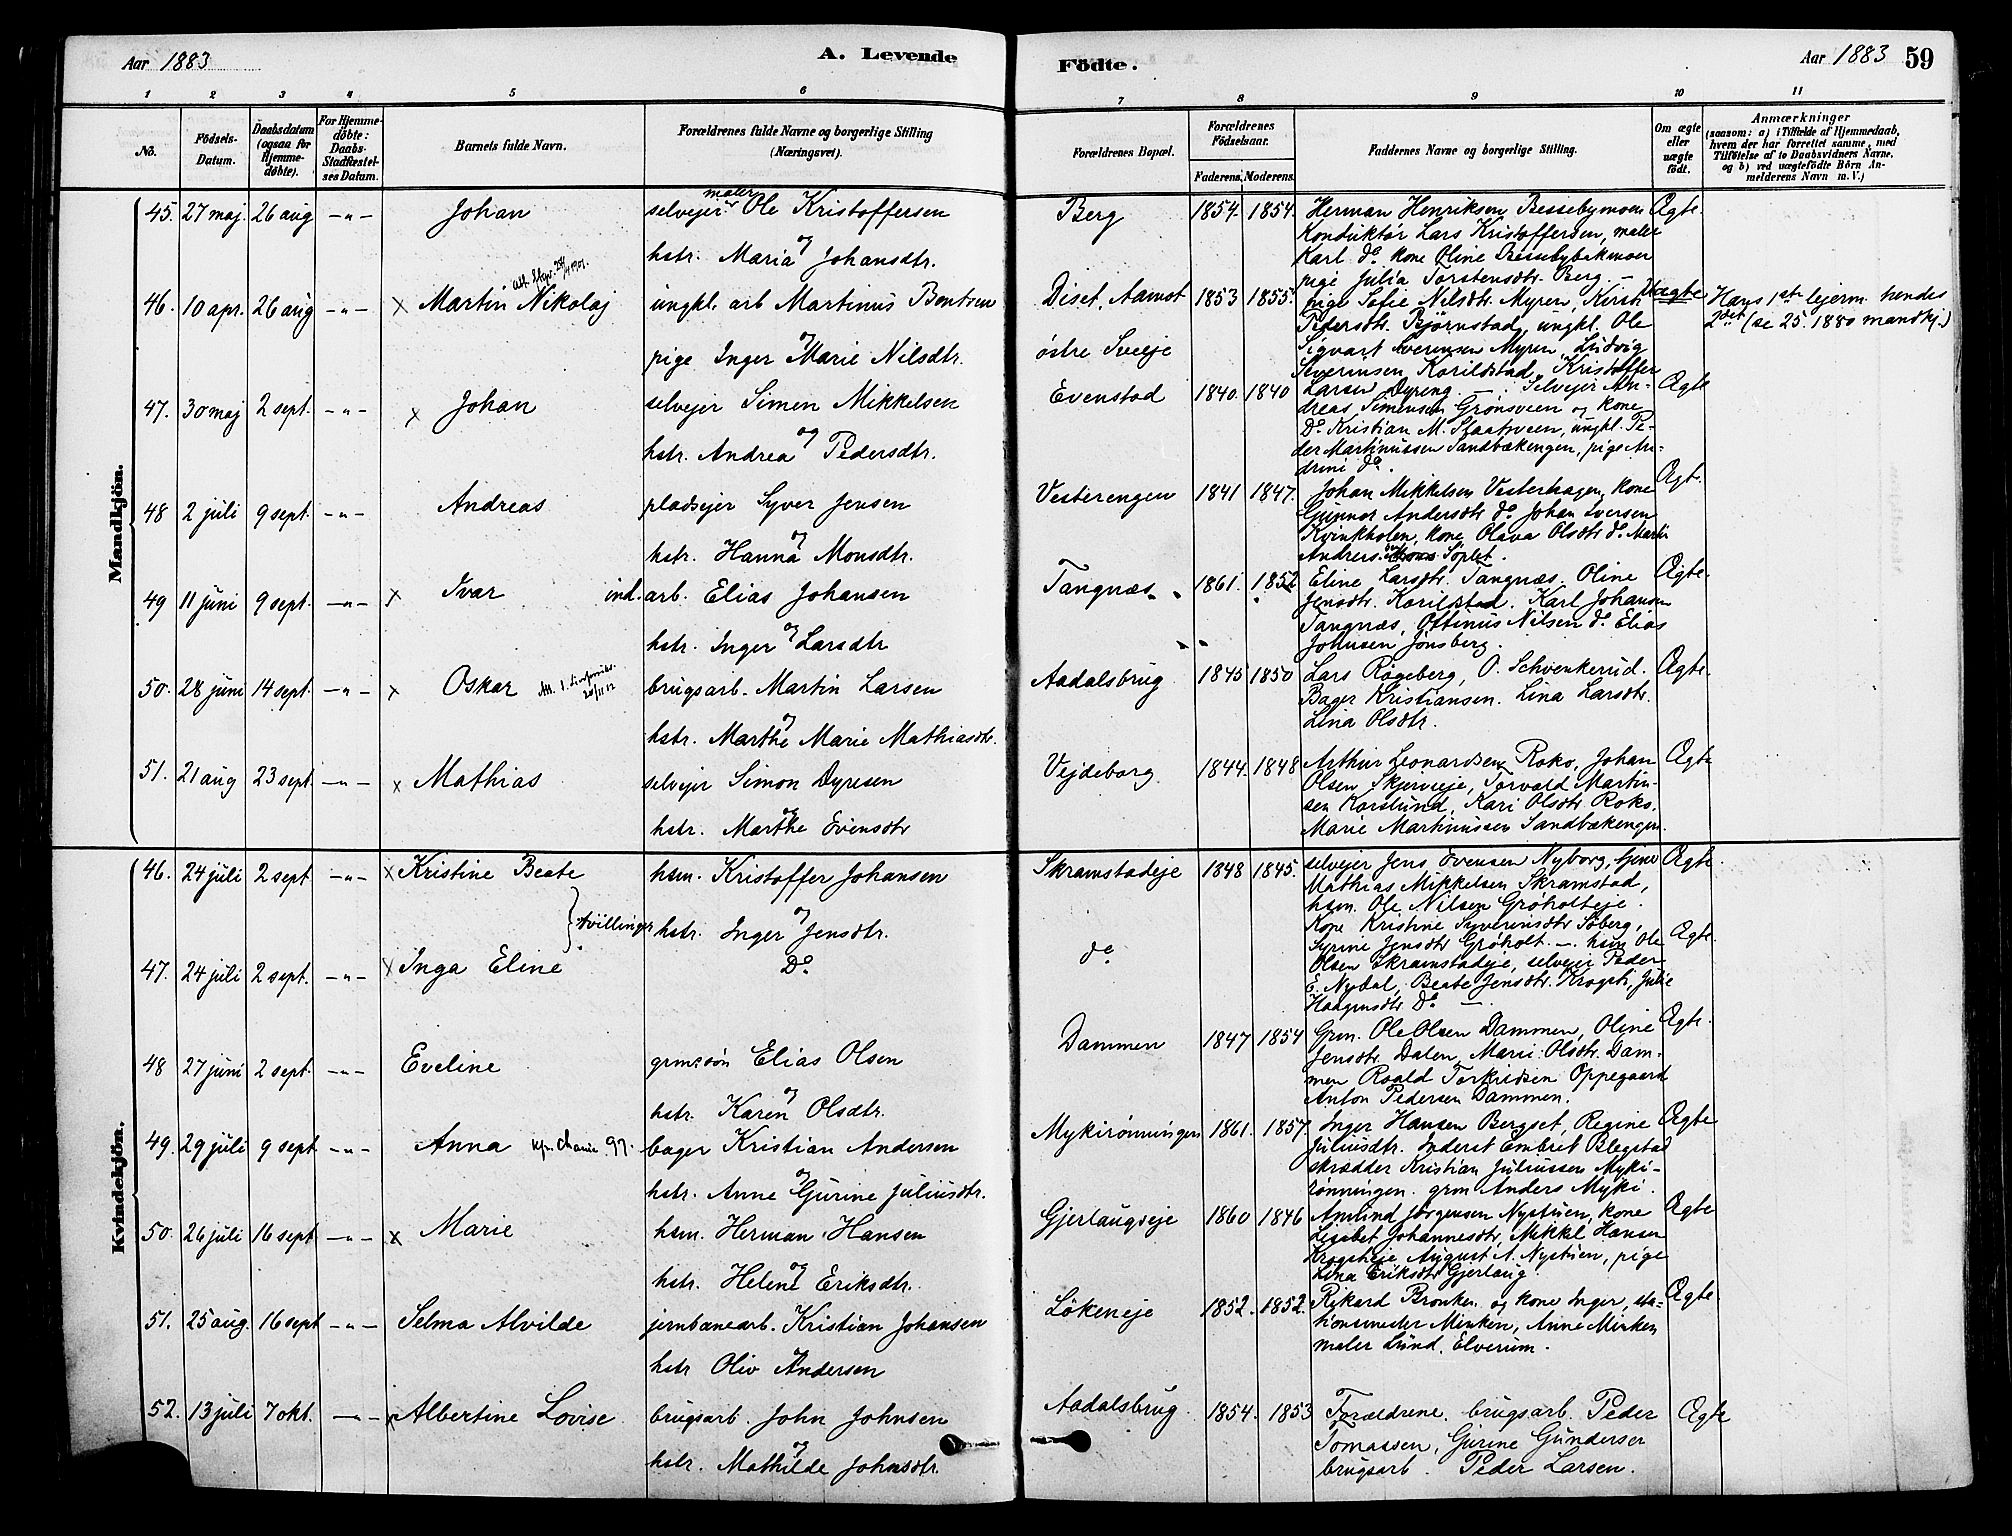 Aar 1883
A. Levende
Födte.
Aar 1883
59
1 2 3 4 5 6 7 8 9 10 11
No.
Födsels-Datum.
Daabsdatum (ogsaa for Hjemme-döbte).
For Hjemme-döbte: Daabs-Stadfæstel-ses Datum.
Barnets fulde Navn.
Forældrenes fulde Navne og borgerlige Stilling (Næringsvei).
Forældrenes Bopæl.
Forældrenes Födselsaar.
Faderens. Moderens.
Faddernes Navne og borgerlige Stilling.
Om ægte eller uægte födt.
Anmærkninger
(saasom: a) i Tilfælde af Hjemmedaab, hvem der har forrettet samme, med Tilföielse af to Daabsvidners Navne, og b) ved uægtefödte Börn An-melderens Navn m. V.)
Mandkjön.
45. 27 maj 26 aug -"- Johan
selvejer maler Ole Kristoffersen
og
hstr. Maria Johansdtr.
Berg 1854. 1854.
Herman Henriksen Bessebymoen
Konduktör Lars Kristoffersen, maler
Karl do kone Oline Bessebybakmoen
pige Julia Torstensdtr. Berg -
Ægte.
46. 10 apr. 26 aug -"- x Martin Nikolaj
ungkl. arb Martinus Bentsen
og
pige Inger Marie Nilsdtr.
Diset, Aamot 1853 1855.
östre Sveeje
pige Sofie Nilsdtr. Myren, Kirsti
Pedersdtr. Björnstad, ungkl. Ole
Sigvart Sverensen Myren, Ludvig
Severinsen Korildstad, Kristoffer
Larsen Dyreng
Uægte
Hans 1ste lejerm. hendes
2det (se 25. 1880 mandkj.)
47. 30 maj 2 sept. -"- x Johan
selvejer Simen Mikkelsen
og
hstr. Andrea Pedersdtr.
Evenstad 1840. 1840
Selvejer An-
dreas Simensen Grönsveen og kone
Do Kristian M. Staatsveen, ungkl. Pe-
der Martinussen Sandbækengen, pige An-
drini do.
Ægte
48 2 juli 9 sept. -"- Andreas
pladsejer Syver Jensen
og
hstr. Hanna Monsdtr.
Vesterengen 1841 1847.
Johan Mikkelsen Vesterhagen, kone
Gunnor Andersdtr do Johan Iversen
Kvinkholen, kone Olava Olsdtr do Martin
Andreas. Söplet.
Ægte.
49 11 juni 9 sept. -"- x Ivar
ind. arb. Elias Johansen
og
hstr. Inger Larsdtr
Tangnæs 1861. 1852
Eline Larsdtr. Tangnæs. Oline
Jensdtr. Korildstad. Karl Johansen
Tangnæs, Ottinus Nilsen do Elias
Johnsen Jönsberg.
Ægte.
50. 28 juni 14 sept. -"- x Oskar
brugsarb. Martin Larsen
og
hstr. Marthe Marie Mathiasdtr.
Aadalsbrug 1845 1850
Lars Rögeberg, O. Schvenkerud.
Bager Kristiansen. Lina Larsdtr.
Lina Olsdtr.
Ægte.
51. 21 aug 23 sept. -"- x Mathias
selvejer Simon Dyresen
og
hstr. Marthe Evensdtr
Vejdeborg 1844. 1848
Arthur Leonardsen Roko, Johan
Olsen Skjerveje, Torvald Martin-
sen Korslund, Kari Olsdtr. Roko.
Marie Martinussen Sandbækengen.
Ægte
Kvindekjön.
46. 24 juli 2 sept -"- x Kristine Beate
} tvillinger
hsm. Kristoffer Johansen
og
hstr. Inger Jensdtr.
Skramstadeje 1848 1845.
selvejer Jens Evensen Nyborg,
Mathias Mikkelsen Skramstad,
hsm. Ole Nilsen Gröholteje.
Kone Kristine Syverinsdtr Söberg,
Syrine Jensdtr Gröholt.
Ægte.
47. 24 juli 2 sept. -"- x Inga Eline
Do
do
hsm Ole
Olsen Skramstadeje, selvejer Peder
E. Nydal, Beate Jensdtr. Krogsti, Julie
Haagensdtr Do
Ægte.
48 27 juni 2 sept. -"- Eveline
grm.sön Elias Olsen
og
hstr. Karen Olsdtr.
Dammen 1847 1854
Grm. Ole Olsen Dammen, Oline
Jensdtr. Dalen, Marie Olsdtr. Dam-
men Roald Torkildsen Oppegaard
Anton Pedersen Dammen.
Ægte.
49. 29 juli 9 sept -"- Anna
bager Kristian Andersen
og
hstr. Anne Gurine Juliusdtr.
Mykirönningen 1861. 1857.
Inger Hansen Bergset, Regine
Juliusdtr. Inderst Embret Blegstad
skrædder Kristian Juliussen Myki-
rönningen. grm Anders Myki.
Ægte
50. 26 juli 16 sept -"- x Marie
hsm. Herman Hansen
og
hstr. Helene Eriksdtr.
Gjerlaugseje 1860 1846
Amund Jörgensen Nystuen, kone
Lisabet Johannesdtr, Mikkel Hansen
Krogstieje August A. Nystuen, pige
Lina Eriksdtr Gjerlaug.
Ægte
51. 25 aug. 16 sept -"- Selma Alvilde
jernbanearb. Kristian Johansen
og
hstr Oliv Andersen
Lökeneje 1852. 1852.
Rikard Bronken og kone Inger, sta-
tionsmeder Minken, Anne Minken
maler Lund, Elverum.
Ægte.
52. 13 juli 7 okt. -"- x Albertine Lovise
brugsarb. John Johnsen
og
hstr. Mathilde Johnsdtr.
Aadalsbrug 1854. 1853
Forældrene. brugsarb. Peder
Tomassen, Gurine Gundersen
brugsarb. Peder Larsen.
Ægte